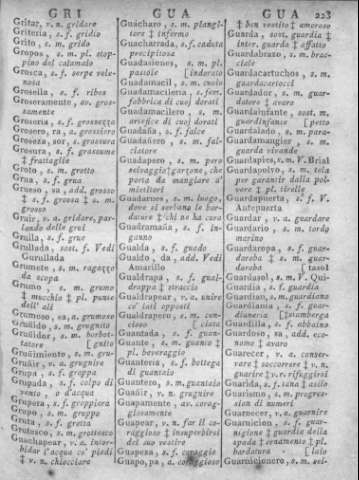 GRI GUA GUA 223
Gritar, v. n. gridare
Griteria, s. f. gridio
Grito, s. m. grido
Gropos, s. m. pl. stop-
pino del calamaio
Grosca, s. f. serpe vele-
nosa
Grosella, s. f. ribes
Groseramente, av. gros-
samente
Groseria, s. f. grossezza
Grosero, ra, a. grossiero
Grosez, sor, s. grossezza
Grosura, s. f. grassume
‡ frattaglie
Groto, s. m. grotto
Grua, s. f. grua
Grueso, sa, add. grosso
‡ s. f. grossa ‡ s. m.
grosso
Gruir, v. n. gridare, par-
lando delle grei
Grulla, s. f. grue
Grullada, sost. f. Vedi
Gurullada
Grumete, s. m. ragazzo
da scopa
Grumo, s. m. grumo
‡ mucchio ‡ pl. punte
dell' ali
Grumoso, sa, a. grumoso
Gruñido, s. m. grugnito
Gruñidor, s. m. borbot-
tatore [gnito
Gruñimiento, s. m. gru-
Gruñir, v. n. grugnire
Grupa, s. f. groppa
Grupada, s. f. colpo di
vento, o d'acqua
Grupera, s. f. groppiera
Grupo, s. m. gruppo
Gruta, s. f. grotta
Grutesco, s. m. grottesco
Guachapear, v. n. intor-
bidar l'acqua co' piedi
‡ v. n. chiocciare
Guácharo, s. m. piangi-
tore ‡ infermo
Guacharrada, s. f. caduta
precipitosa
Guadasiones, s. m. pl.
pastoie [indorato
Guadamacil, s. m. cuoio
Guadamacileria, s. f. en.
fabbrica di cuoj dorati
Guadamacilero, s. m.
orefice di cuoj dorati
Guadaña, s. f. falce
Guadañero, s. m. fal-
ciatore
Guadapero, s. m. pero
selvaggio ‡ garzone, che
porta da mangiare a'
mietitori
Guadarnes, s. m. luogo,
dove si serbano le bar-
dature ‡ chi ne ha cura
Guadramaña, s. f. in-
ganno
Gualda, s. f. guado
Gualdo, da, add. Vedi
Amarillo
Gualdrapa, s. f. gual-
drappa ‡ straccio
Gualdrapear, v. a. unire
co' lati opposti
Gualdrapero, s. m. cen-
cioso [vista
Guantada, s. f. guan-
Guante, s. m. guanto ‡
pl. beveraggio
Guanteria, s. f. bottega
di guantaio
Guantero, s. m. guantaio
Guañir, v. n. grugnire
Guapamente, av. corag-
giosamente
Guapear, v. n. far il co-
raggioso ‡ insuperbirsi
del suo vestire
Guapeza, s. f. coraggio
Guapo, pa, a. coraggioso
‡ ben vestito ‡ amoroso
Guarda, sost. guardia ‡
inter. guarda ‡ affatto
Guardabrazo, s. m. brac-
ciale
Guardacartuchos, s. m.
guardacartocci
Guardador, s. m. guar-
datore ‡ avaro
Guardainfante, sost. m.
guardinfante [petto
Guardalado, s. m. para-
Guardamangier, s. m.
guarda vivande
Guardapies, v. m. V. Brial
Guardapolvo, s. m. tela
per garantir dalla pol-
vere ‡ pl. tirelle
Guardapuerta, s. f. V.
Antepuerta
Guardar, v. a. guardare
Guardario, s. m. tordo
marino
Guardaropa, s. f. guar-
daroba ‡ s. m. guar-
daroba [taso‡
Guardasol, s. m. V. Qui-
Guardia, s. f. guardia
Guardian, s. m. guardiano
Guardiania, s. f. guar-
dianeria [‡zamberga
Guardilla, s. f. abbaino
Guardoso, sa, add. eco-
nomo ‡ avaro
Guarecer, v. a. conser-
vare ‡ soccorrere ‡ v. n.
guarire ‡ v. r. rifuggirsi
Guarida, s. f. tana ‡ asilo
Guarismo, s. m. progres-
sion di numeri
Guarnecer, v. a. guarnire
Guarnicion, s. f. guar-
nigione ‡ guardia della
spada ‡ ornamento ‡ pl.
bardatura [laio
Guarnicionero, s. m. sel-